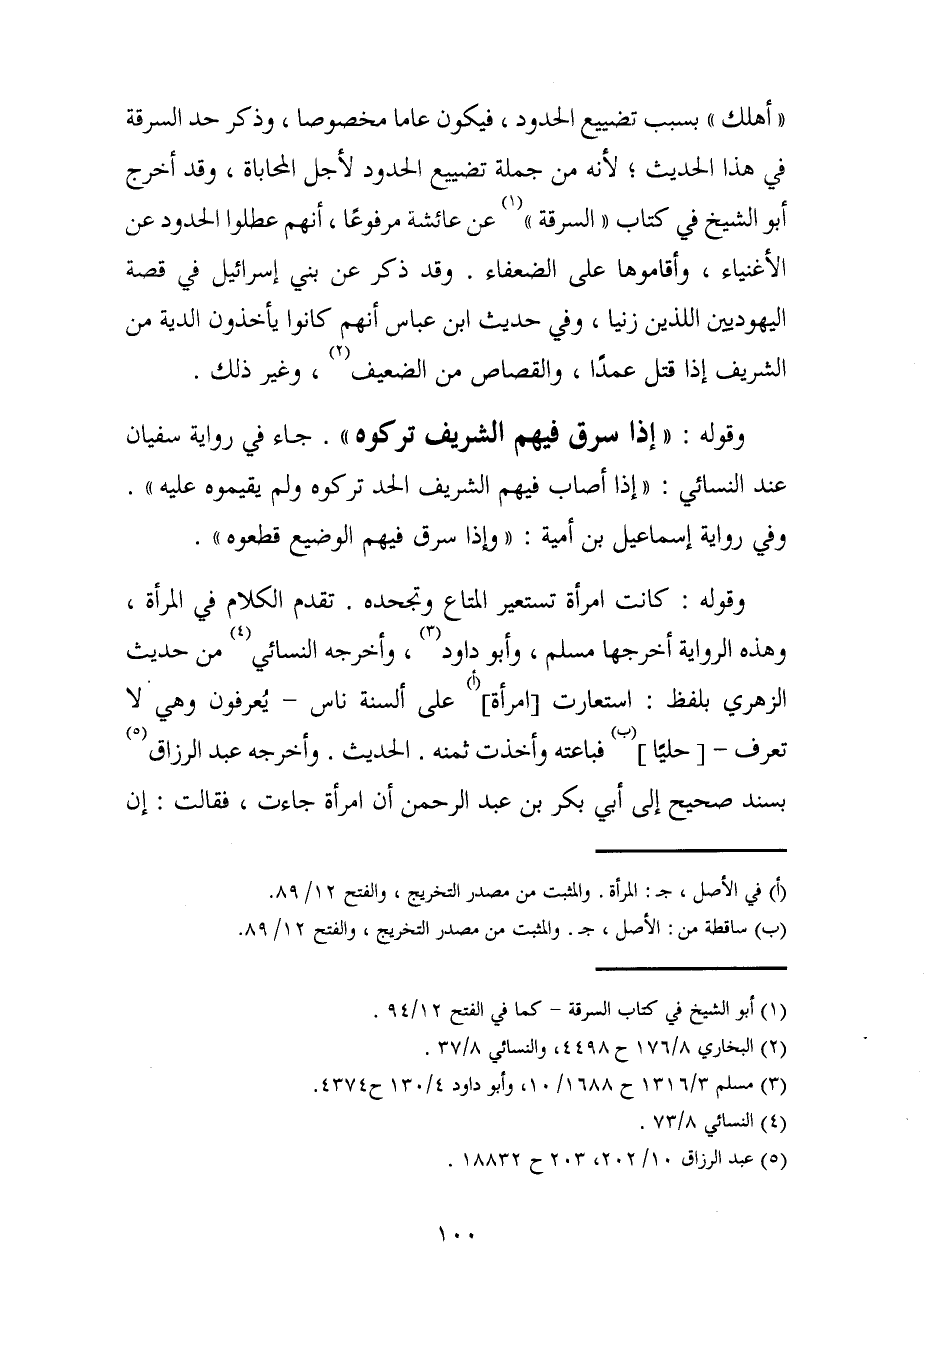 « أهلك » بسبب تضييع الحدود ، فيكون عاما مخصوصا ، وذكر حد السرقة
في هذا الحديث ؛ لأنه من جملة تضييع الحدود لأجل المحاباة ، وقد أخرج
أبو الشيخ في كتاب « السرقة »(١) عن عائشة مرفوعًا ، أنهم عطلوا الحدود عن
الأغنياء ، وأقاموها على الضعفاء . وقد ذكر عن بني إسرائيل في قصة
اليهوديين اللذين زنيا ، وفي حديث ابن عباس أنهم كانوا يأخذون الدية من
الشريف إذا قتل عمدًا ، والقصاص من الضعيف(٢) ، وغير ذلك .
وقوله : « إذا سرق فيهم الشريف تركوه » . جاء في رواية سفيان
عند النسائي : « إذا أصاب فيهم الشريف الحد تركوه ولم يقيموه عليه » .
وفي رواية إسماعيل بن أمية : « وإذا سرق فيهم الوضيع قطعوه » .
وقوله : كانت امرأة تستعير المتاع وتجحده . تقدم الكلام في المرأة ،
وهذه الرواية أخرجها مسلم ، وأبو داود(٣) ، وأخرجه النسائي(٤) من حديث
الزهري بلفظ : استعارت [امرأة](أ) على ألسنة ناس – يُعرفون وهي لا
تعرف – [ حليًا ](ب) فباعته وأخذت ثمنه . الحديث . وأخرجه عبد الرزاق(٥)
بسند صحيح إلى أبي بكر بن عبد الرحمن أن امرأة جاءت ، فقالت : إن
(أ) في الأصل ، جـ : المرأة . والمثبت من مصدر التخريج ، والفتح ١٢/ ٨٩.
(ب) ساقطة من : الأصل ، جـ . والمثبت من مصدر التخريج ، والفتح ١٢/ ٨٩.
(١) أبو الشيخ في كتاب السرقة – كما في الفتح ٩٤/١٢ .
(٢) البخاري ١٧٦/٨ ح ٤٤٩٨، والنسائي ٣٧/٨ .
(٣) مسلم ١٣١٦/٣ ح ١٦٨٨/ ١٠، وأبو داود ١٣٠/٤ ح٤٣٧٤.
(٤) النسائي ٧٣/٨ .
(٥) عبد الرزاق ١٠/ ٢٠٢، ٢٠٣ ح ١٨٨٣٢ .
١٠٠